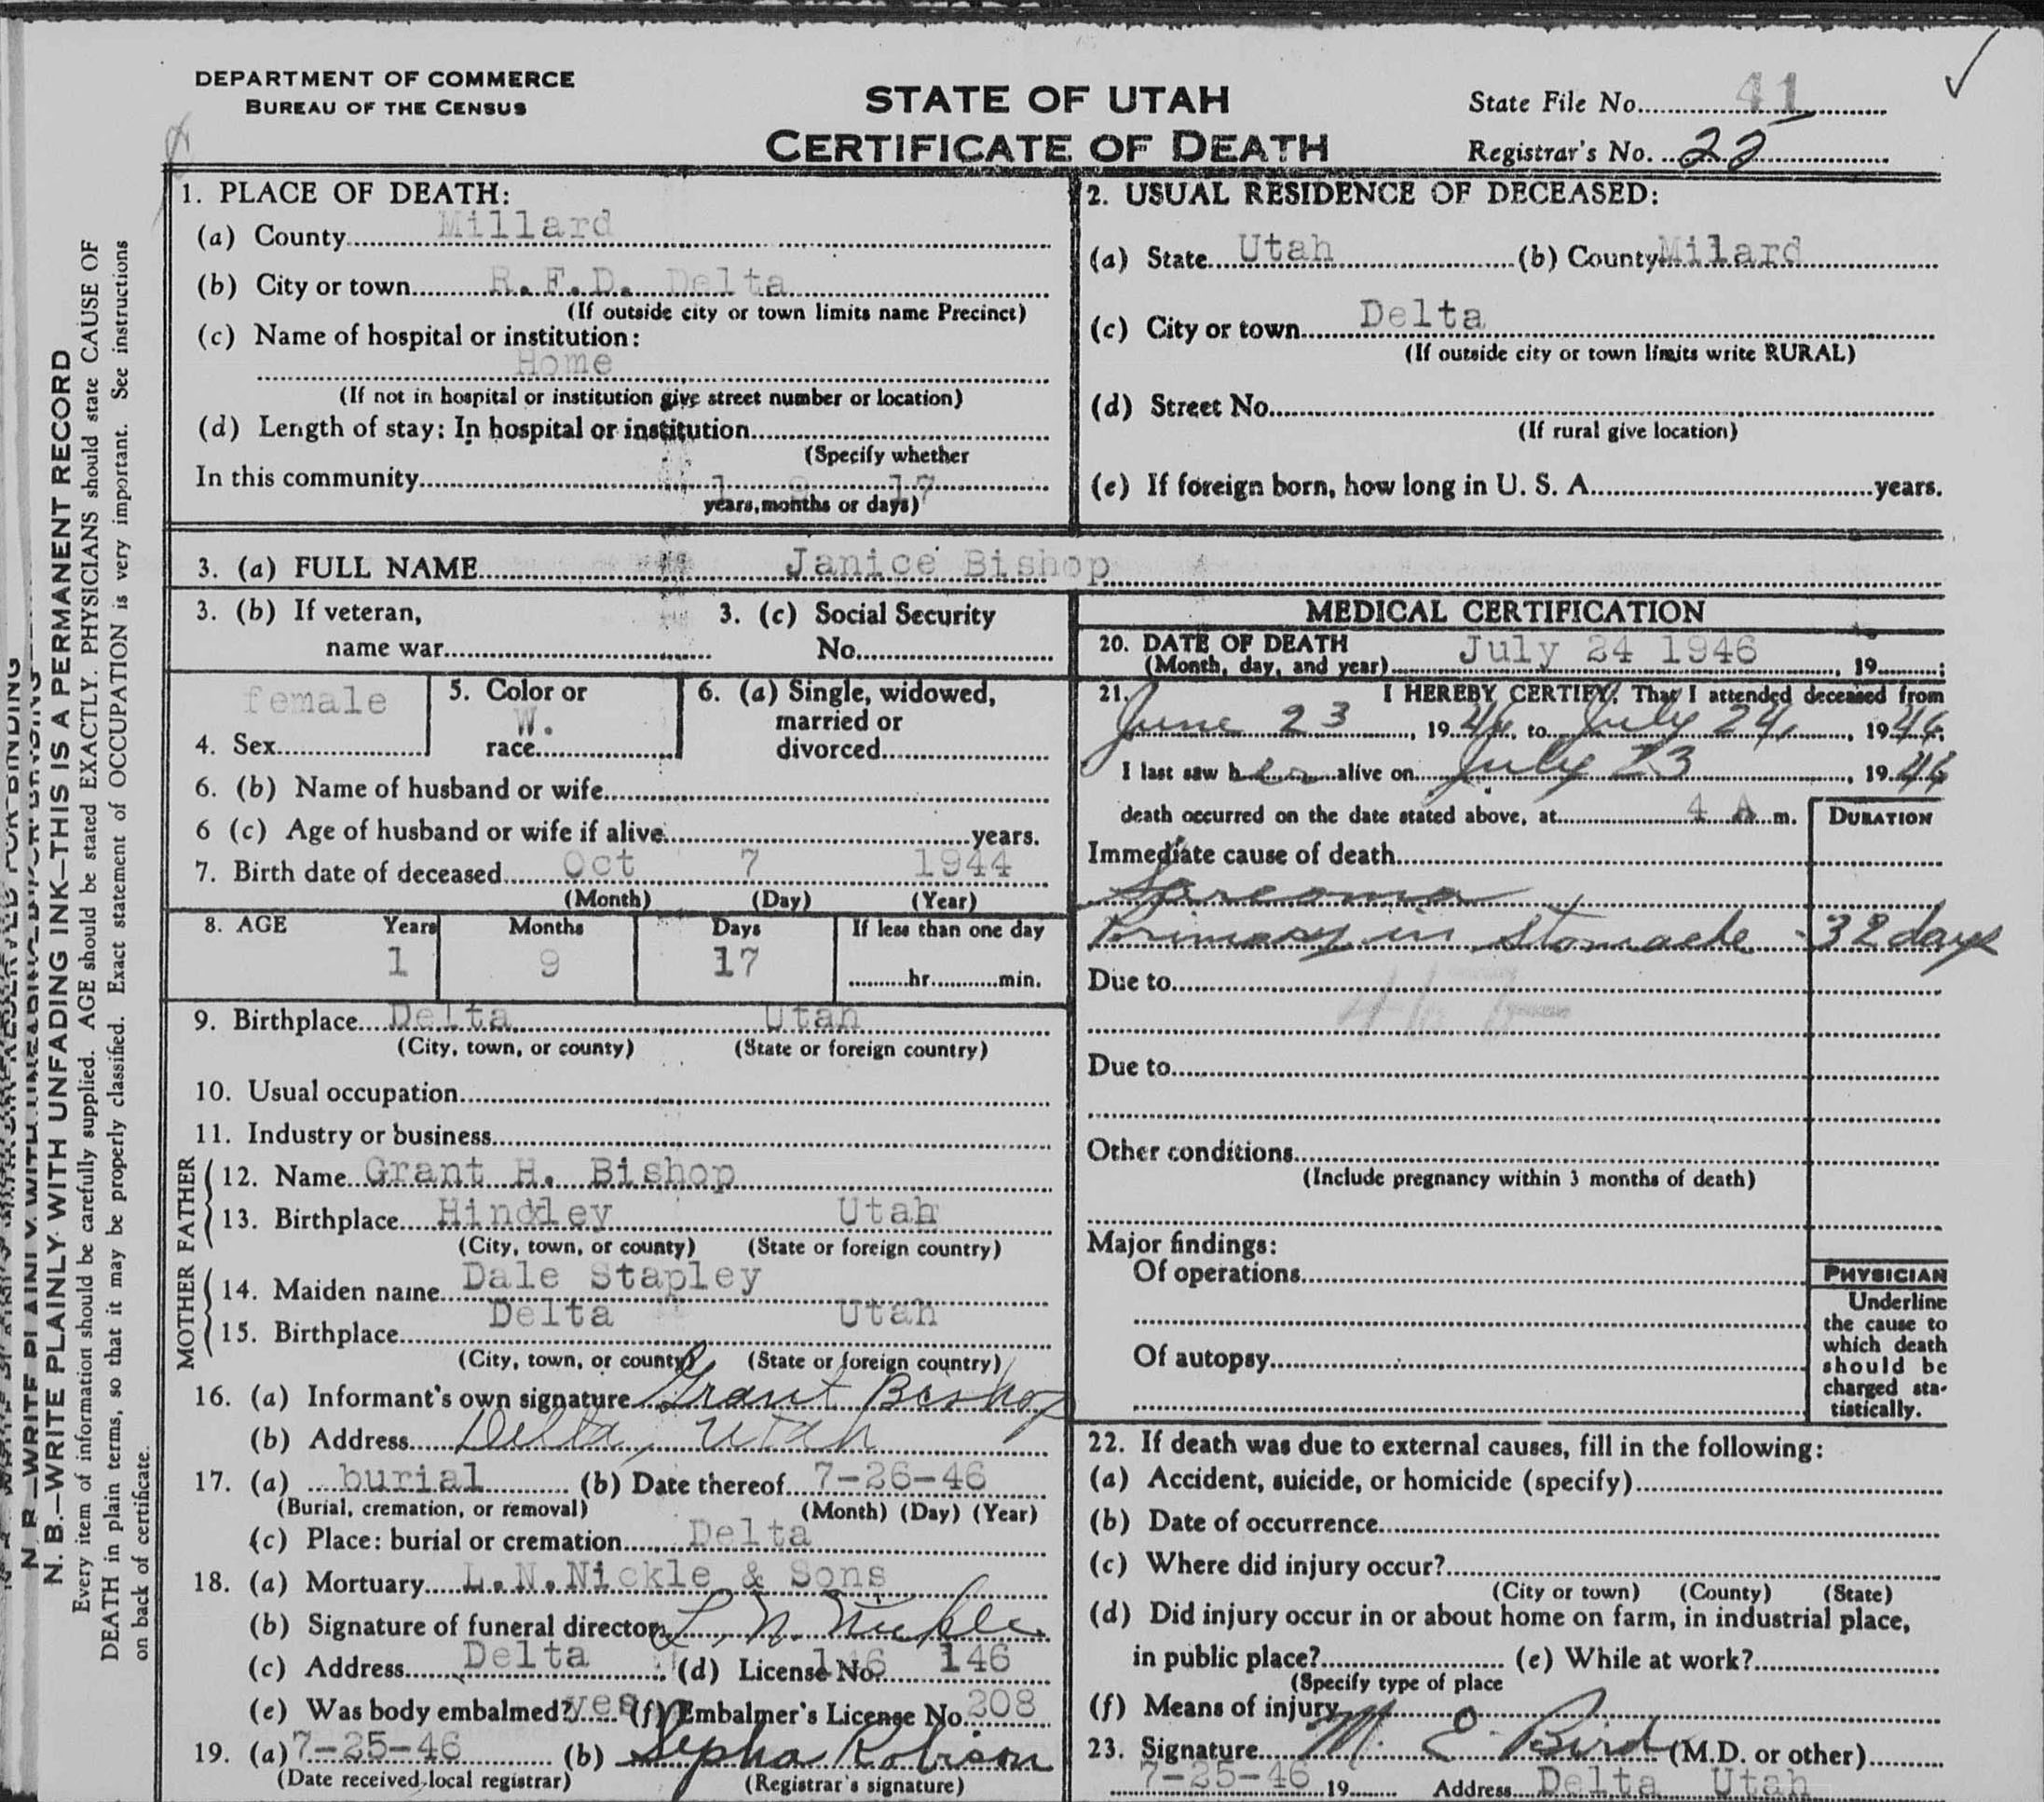 DEPARTMENT OF COMMERCE
BUREAU OF THE CENSUS
STATE OF UTAH
CERTIFICATE OF DEATH
State File No. 41
Registrar's No. 22
1. PLACE OF DEATH:
(a) County Millard
(b) City or town R.F.D. Delta
(If outside city or town limits name Precinct)
(c) Name of hospital or institution:
Home
(If not in hospital or institution give street number or location)
(d) Length of stay: In hospital or institution
(Specify whether
In this community 1 9 17
years, months or days)
2. USUAL RESIDENCE OF DECEASED:
(a) State Utah (b) County Milard
(c) City or town Delta
(If outside city or town limits write RURAL)
(d) Street No.
(If rural give location)
(e) If foreign born, how long in U. S. A. years.
3. (a) FULL NAME Janice Bishop
3. (b) If veteran,
name war
3. (c) Social Security
No.
4. Sex female
5. Color or
race W.
6. (a) Single, widowed,
married or
divorced
6. (b) Name of husband or wife
6 (c) Age of husband or wife if alive years.
7. Birth date of deceased Oct 7 1944
(Month) (Day) (Year)
8. AGE Years Months Days If less than one day
1 9 17 hr. min.
9. Birthplace Delta Utah
(City, town, or county) (State or foreign country)
10. Usual occupation
11. Industry or business
FATHER
12. Name Grant H. Bishop
13. Birthplace Hinckley Utah
(City, town, or county) (State or foreign country)
MOTHER
14. Maiden name Dale Stapley
15. Birthplace Delta Utah
(City, town, or county) (State or foreign country)
16. (a) Informant's own signature Grant Bishop
(b) Address Delta, Utah
17. (a) burial (b) Date thereof 7-26-46
(Burial, cremation, or removal) (Month) (Day) (Year)
(c) Place: burial or cremation Delta
18. (a) Mortuary L.N.Nickle & Sons
(b) Signature of funeral director L. N. Nickle
(c) Address Delta (d) License No. 146 146
(e) Was body embalmed? yes (f) Embalmer's License No. 208
19. (a) 7-25-46 (b) Sepha Robison
(Date received local registrar) (Registrar's signature)
MEDICAL CERTIFICATION
20. DATE OF DEATH
(Month, day, and year) July 24 1946, 19 ;
21. I HEREBY CERTIFY, That I attended deceased from
June 23, 1946, to July 24, 1946,
I last saw her alive on July 23, 1946
death occurred on the date stated above, at 4 A m.
DURATION
Immediate cause of death
Sarcoma
Primary in stomache - 32 days
Due to
Due to
Other conditions
(Include pregnancy within 3 months of death)
Major findings:
Of operations
Of autopsy
PHYSICIAN
Underline
the cause to
which death
should be
charged sta-
tistically.
22. If death was due to external causes, fill in the following:
(a) Accident, suicide, or homicide (specify)
(b) Date of occurrence
(c) Where did injury occur?
(City or town) (County) (State)
(d) Did injury occur in or about home on farm, in industrial place,
in public place? (e) While at work?
(Specify type of place
(f) Means of injury
23. Signature M. E. Bird (M.D. or other)
7-25-46 19 Address Delta Utah
N. B.—WRITE PLAINLY WITH UNFADING INK—THIS IS A PERMANENT RECORD
Every item of information should be carefully supplied. AGE should be stated EXACTLY. PHYSICIANS should state CAUSE OF
DEATH in plain terms, so that it may be properly classified. Exact statement of OCCUPATION is very important. See instructions
on back of certificate.